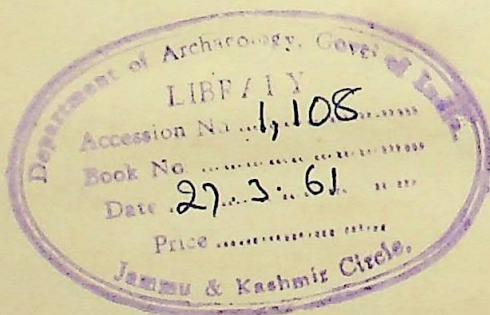 Department of Archaeology, Govt. of India.
LIBRARY
Accession No ...1,108............
Book No. ............................
Date .27..3..61. .......
Price ............................
Jammu & Kashmir Circle.